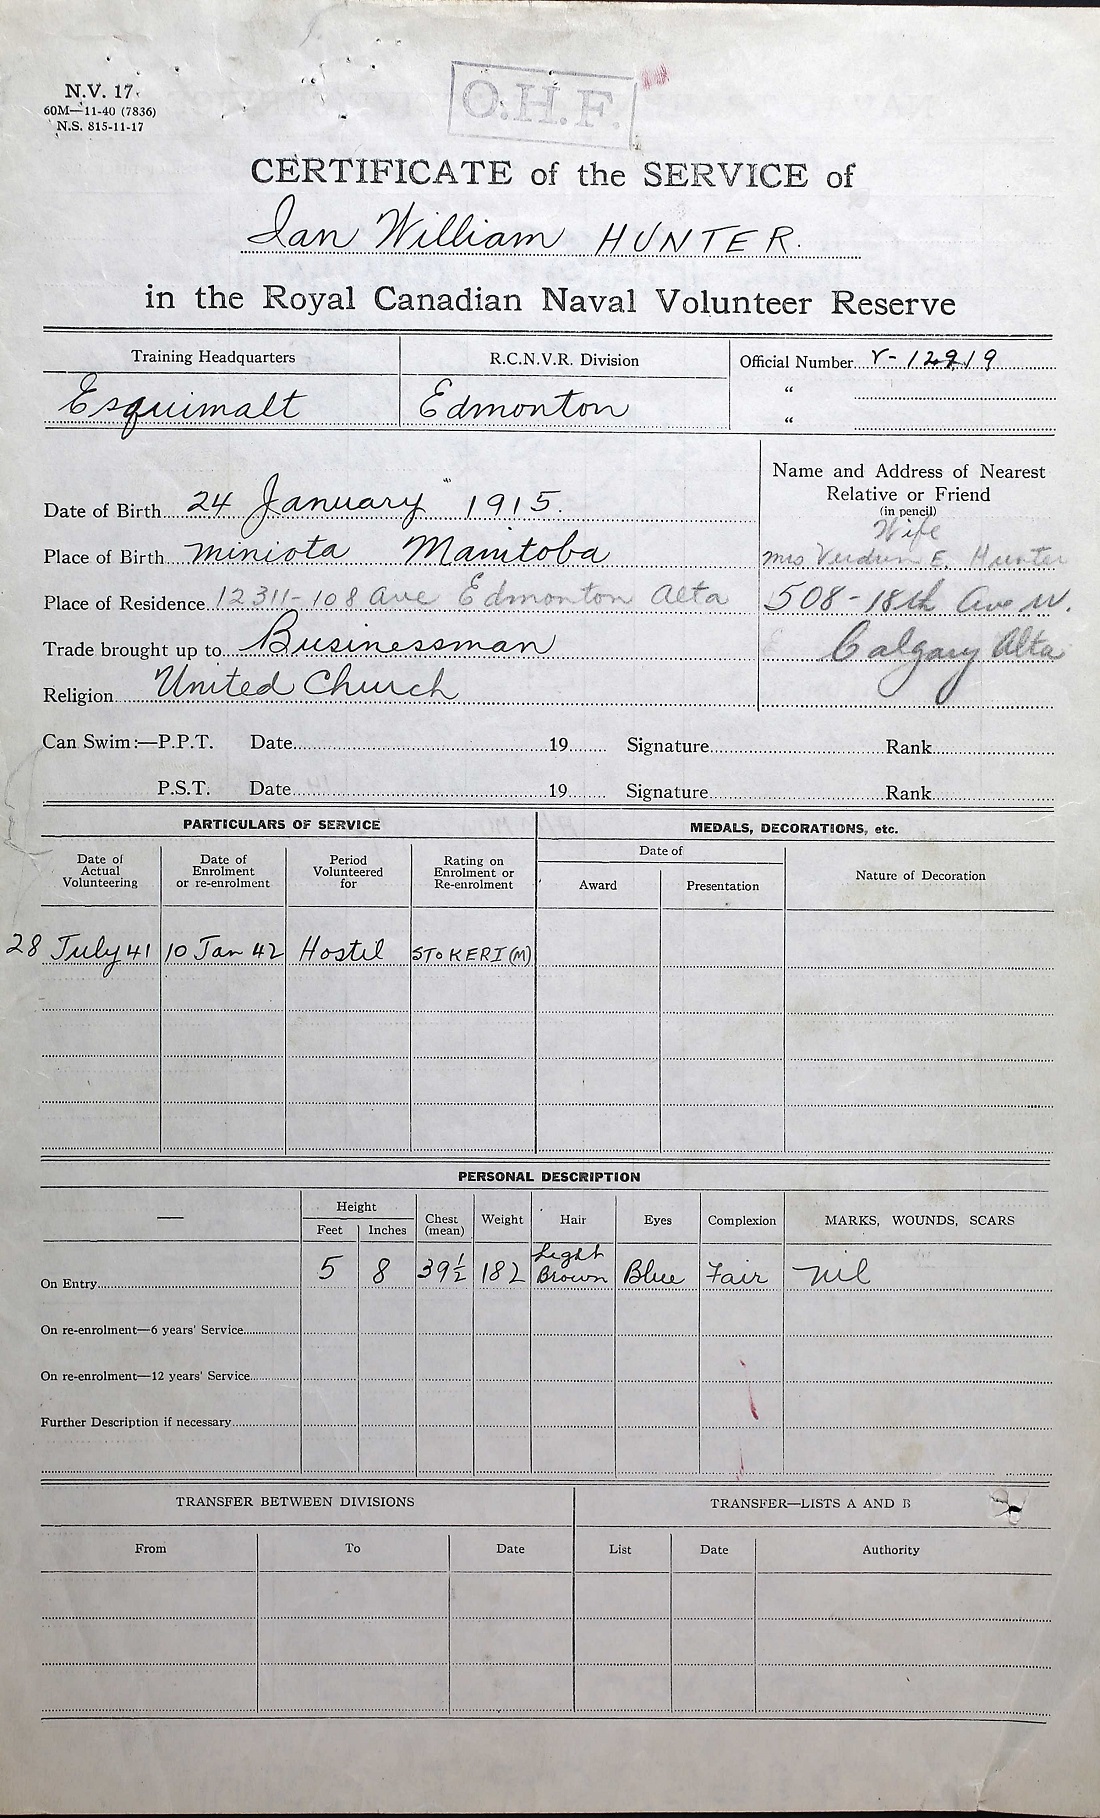 N.V. 17.
60M—11-40 (7836)
N.S. 815-11-17
O.H.F.
CERTIFICATE of the SERVICE of
Ian William HUNTER.
in the Royal Canadian Naval Volunteer Reserve
Training Headquarters R.C.N.V.R. Division Official Number
Esquimalt Edmonton
"
"
Name and Address of Nearest
Relative or Friend
(in pencil)
Wife
Mrs Verdun E. Hunter
508-18th Ave W.
Calgary Alta
Date of Birth 24 January 1915.
Place of Birth Miniota Manitoba
Place of Residence 12311-108 Ave Edmonton Alta
Trade brought up to Businessman
Religion United Church
Can Swim:—P.P.T. Date 19 Signature Rank
P.S.T. Date 19 Signature Rank
PARTICULARS OF SERVICE
Date of Actual Volunteering Date of Enrolment or re-enrolment Period Volunteered for Rating on Enrolment or Re-enrolment
28 July 41 10 Jan 42 Hostil STOKER I (M)
MEDALS, DECORATIONS, etc.
Date of
Award Presentation Nature of Decoration
PERSONAL DESCRIPTION
— Height Chest (mean) Weight Hair Eyes Complexion MARKS, WOUNDS, SCARS
Feet Inches
On Entry 5 8 39½ 182 Light Brown Blue Fair Nil
On re-enrolment—6 years' Service
On re-enrolment—12 years' Service
Further Description if necessary
TRANSFER BETWEEN DIVISIONS TRANSFER—LISTS A AND B
From To Date List Date Authority